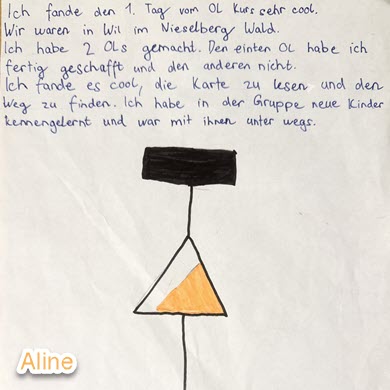 Ich fande den 1. Tag vom OL Kurs sehr cool.
Wir waren in Wil im Nieselberg Wald.
Ich habe 2 OLs gemacht. Den einten OL habe ich
fertig geschafft und den anderen nicht.
Ich fande es cool, die Karte zu lesen und den
Weg zu finden. Ich habe in der Gruppe neue Kinder
kennengelernt und war mit ihnen unter wegs.
Aline